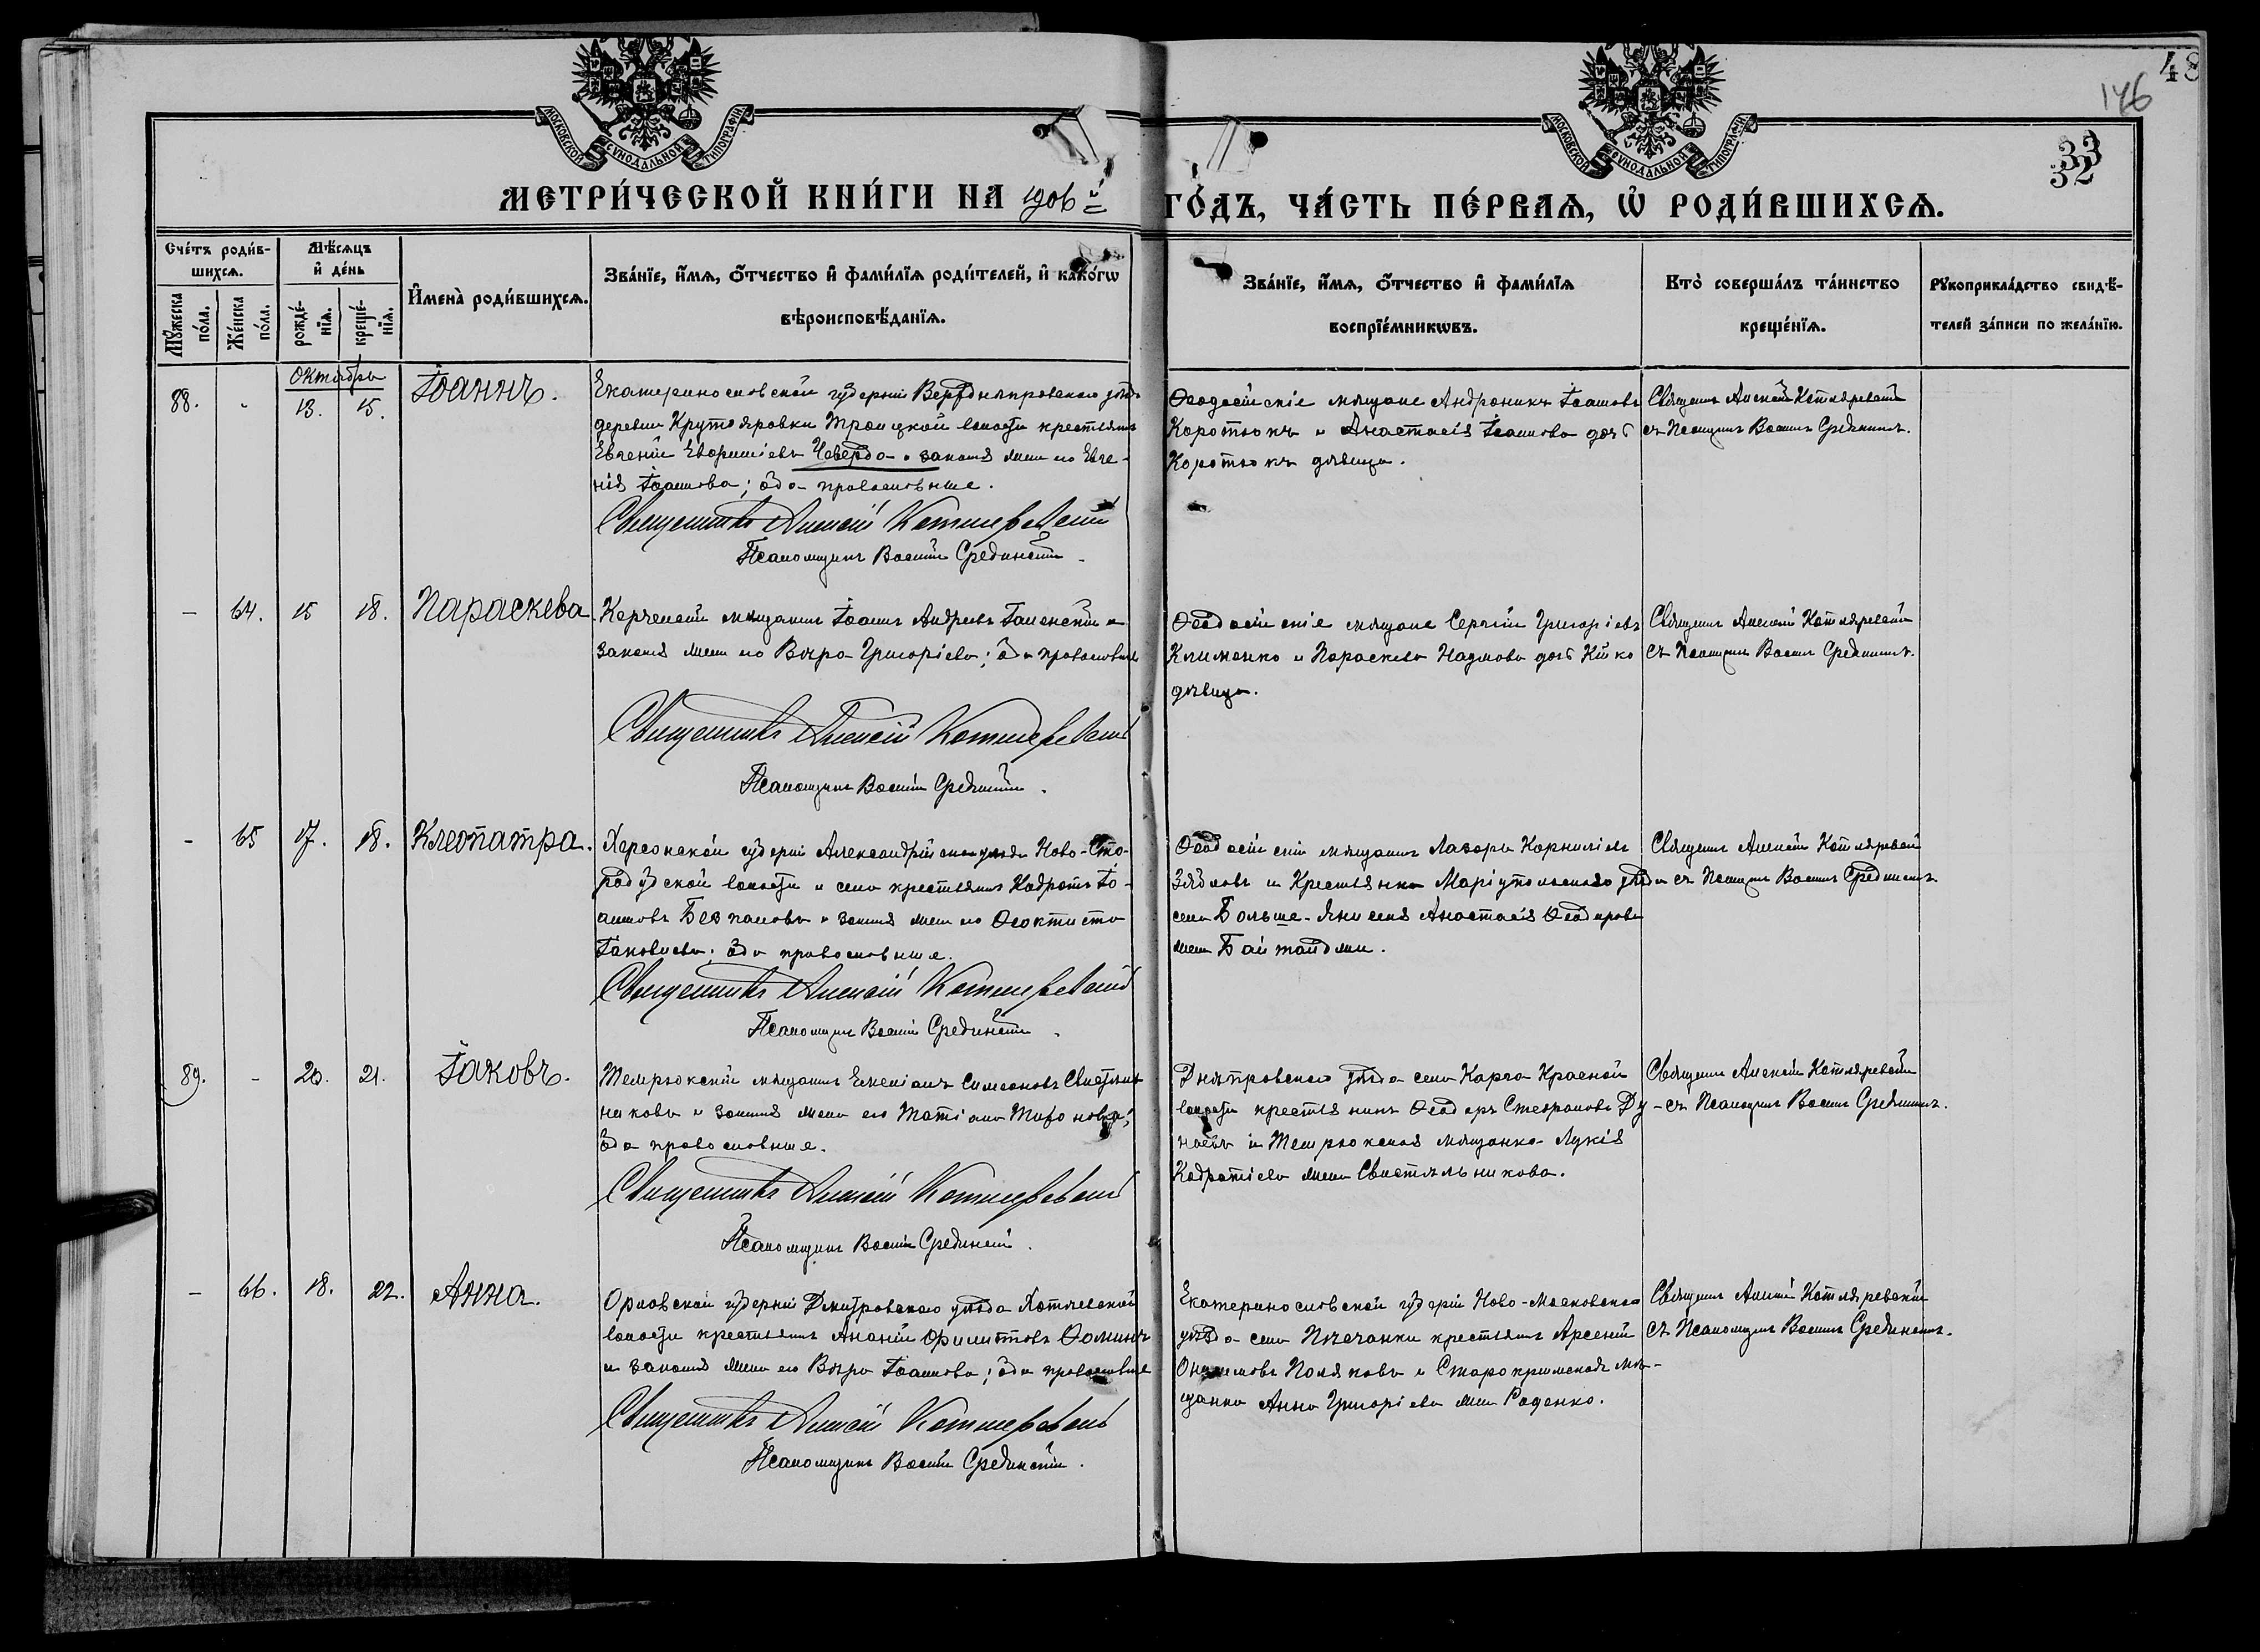 МОСКОВСКОЙ СѴНОДАЛЬНОЙ ТИПОГРАФІИ
МОСКОВСКОЙ СѴНОДАЛЬНОЙ ТИПОГРАФІИ
48
146
33
32
МЕТРИ́ЧЕСКОЙ КНИ́ГИ НА 1906 й
ГО́ДЪ, ЧА́СТЬ ПЕ́РВАѦ, Ѡ҆ РОДИ́ВШИХСѦ.
Сче́тъ роди́в-
шихсѧ.
Мꙋ́жеска по́ла.
Же́нска по́ла.
Мѣ́сѧцъ
и҆ де́нь
рожде́-нїѧ.
креще́-нїѧ.
И҆мена̀ роди́вшихсѧ.
Зва́нїе, и҆́мѧ, ѻ҆́тчество и҆ фами́лїѧ роди́телей, и҆ како́гѡ
вѣроисповѣ́данїѧ.
Зва́нїе, и҆́мѧ, ѻ҆́тчество и҆ фами́лїѧ
воспрїе́мникѡвъ.
Кто̀ соверша́лъ та́инство
креще́нїѧ.
Рꙋкоприкла́дство свидѣ́-
телей за́писи по жела́нїю.
Октябрь
88. - 13. 15. Іоаннъ.
Екатеринославской губерніи Верхнеднѣпровскаго уѣзда
деревни Крутояровки Троицкой волости крестьянинъ
Евгеній Чеверда и законная жена его Евге-
нія Іоаннова; оба православные.
Священникъ Алексій Котляревскій
Псаломщикъ Василій Срединскій.
Ѳеодосійскіе мѣщане Андроникъ Іоанновъ
Коротюкъ и Анастасія Іоаннова дочь
Коротюкъ дѣвица.
Священникъ Алексій Котляревскій
съ Псаломщик. Васил. Срединским.
- 64. 15 18. Параскева.
Керченскій мѣщанинъ Іоаннъ Андреевъ и
законная жена его Вѣра Григоріева; оба православные
Священникъ Алексій Котляревскій
Псаломщикъ Василій Срединскій.
Ѳеодосійскіе мѣщане Сергій Григоріевъ
Клименко и Параскева Наумова дочь
дѣвица.
Священникъ Алексій Котляревскій
съ Псаломщик. Васил. Срединским.
- 65 17. 18. Клеопатра.
Херсонской губерніи Александрійскаго уѣзда Ново-Ста-
родубской волости и села крестьянинъ Іо-
анновъ и законная жена его Ѳеоктиста
Іаковлева; оба православные.
Священникъ Алексій Котляревскій
Псаломщикъ Василій Срединскій.
Ѳеодосійскій мѣщанинъ Лазарь Корниліевъ
и крестьянка Маріупольскаго уѣзда
села Больше-Янисоля Анастасія Ѳеодорова
жена
Священникъ Алексій Котляревскій
съ Псаломщик. Васил. Срединским.
89. - 20. 21. Іаковъ.
Темрюкскій мѣщанинъ Симеоновъ Свистѣль-
никовъ и законная жена его Татіана
оба православные.
Священникъ Алексій Котляревскій
Псаломщикъ Василій Срединскій.
Днѣпровскаго уѣзда села Карга Красной
волости крестьянинъ Ѳеодоръ Стефановъ Ду-
наевъ и Темрюкская мѣщанка Лукія
Кодратіева жена Свистѣльникова.
Священникъ Алексій Котляревскій
съ Псаломщик. Васил. Срединским.
- 66. 18. 22. Анна.
Орловской губерніи Дмитровскаго уѣзда
волости крестьянинъ Ананій Филипповъ Ѳоминъ
и законная жена его Вѣра Іоаннова; оба православные
Священникъ Алексій Котляревскій
Псаломщикъ Василій Срединскій.
Екатеринославской губерніи Ново-Московскаго
уѣзда села Пѣсчанки крестьянинъ Арсеній
Поляковъ и Старокрымская мѣ-
щанка Анна Григоріева жена Раденко.
Священникъ Алексій Котляревскій
съ Псаломщик. Васил. Срединским.